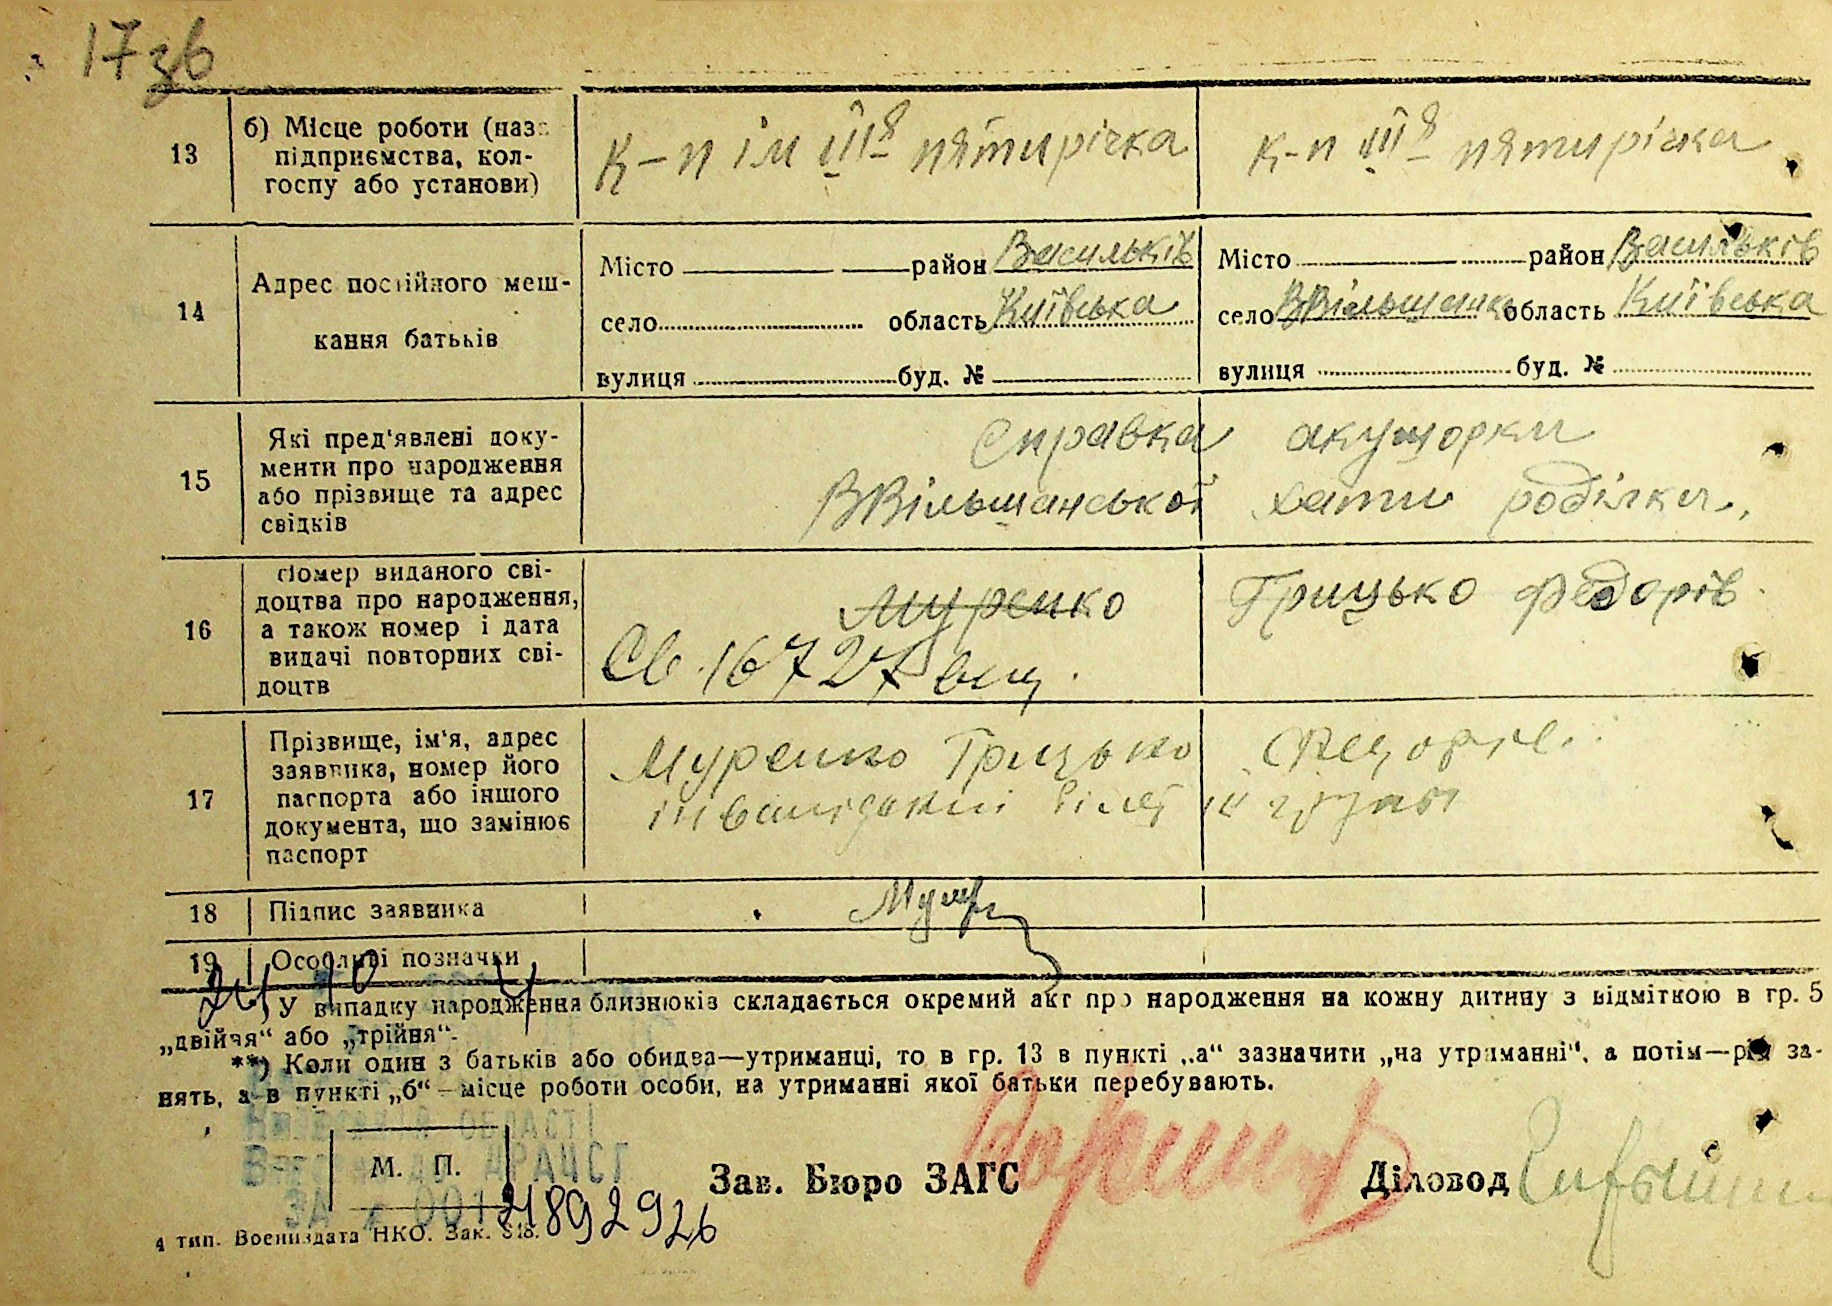 17 зв
13 б) Місце роботи (назва
підприємства, кол-
госпу або установи)
к-п ім III я пятирічка
к-п III я пятирічка
14 Адрес постійного меш-
кання батьків
Місто район Васильків
село область Київська
вулиця буд. №
Місто район Васильків
село ВВільшанка область Київська
вулиця буд. №
15 Які пред'явлені доку-
менти про народження
або прізвище та адрес
свідків
Справка акушорки
ВВільшанської хати роділки.
16 Номер виданого сві-
доцтва про народження,
а також номер і дата
видачі повторних сві-
доцтв
Муренко Грицько Федорів
Св. 16727 вищ.
17 Прізвище, ім'я, адрес
заявника, номер його
паспорта або іншого
документа, що замінює
паспорт
Муренко Грицько Федорів
інвалідський білет ІІ групи
18 Підпис заявника
19 Особливі позначки
У випадку народження близнюків складається окремий акт про народження на кожну дитину з відміткою в гр. 5
„двійня“ або „трійня“.
**) Коли один з батьків або обидва—утриманці, то в гр. 13 в пункті „а“ зазначити „на утриманні“, а потім—рід за-
нять, а в пункті „б“—місце роботи особи, на утриманні якої батьки перебувають.
М. П.
Зав. Бюро ЗАГС
Діловод
ДРАЦСГ
ЗА № 001 21892926
4 тип. Воениздата НКО. Зак. 818.